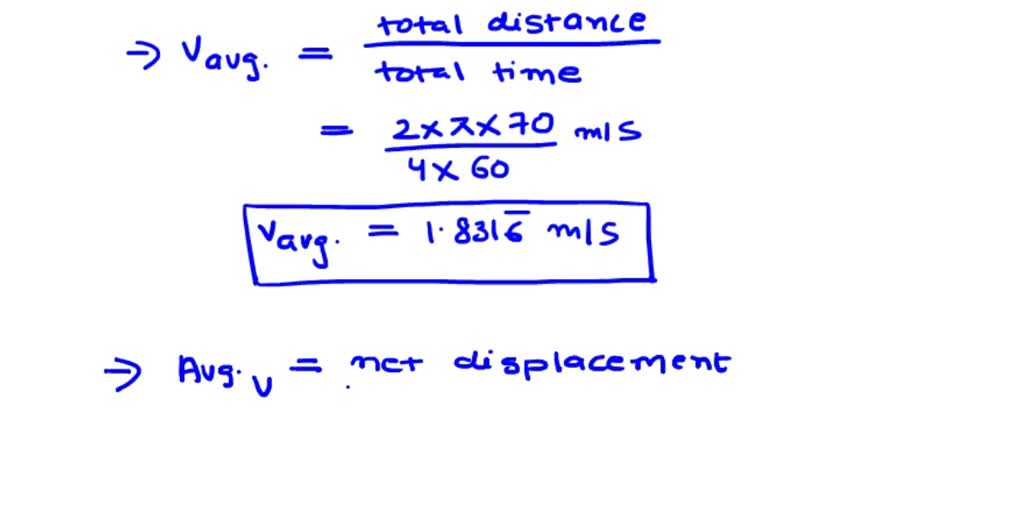 → Vavg. = total distance / total time
= 2 × π × 70 / 4 × 60 m/s
Vavg. = 1.8316̅ m/s
→ Avg. v = net displacement